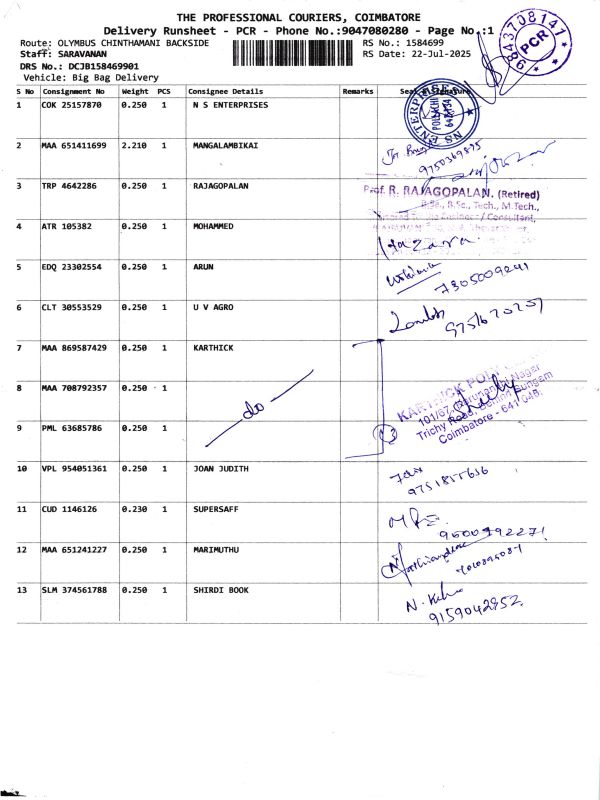 THE PROFESSIONAL COURIERS, COIMBATORE
Delivery Runsheet - PCR - Phone No.:9047080280 - Page No.:1
Route: OLYMBUS CHINTHAMANI BACKSIDE RS No.: 1584699
Staff: SARAVANAN RS Date: 22-Jul-2025
DRS No.: DCJB158469901
Vehicle: Big Bag Delivery
9843708141
PCR
S No Consignment No Weight PCS Consignee Details Remarks Seal &Signature
1 COK 25157870 0.250 1 N S ENTERPRISES
NS ENTERPRISES
2 MAA 651411699 2.210 1 MANGALAMBIKAI
3 TRP 4642286 0.250 1 RAJAGOPALAN
Prof. R. RAJAGOPALAN. (Retired)
B.Sc., Tech., M.Tech.,
4 ATR 105382 0.250 1 MOHAMMED
5 EDQ 23302554 0.250 1 ARUN
7305009241
6 CLT 30553529 0.250 1 U V AGRO
7 MAA 869587429 0.250 1 KARTHICK
8 MAA 708792357 0.250 1
KARTHICK
Nagar
Trichy Road, Behind Sungam
Coimbatore - 641 045.
do
9 PML 63685786 0.250 1
3
10 VPL 954051361 0.250 1 JOAN JUDITH
11 CUD 1146126 0.230 1 SUPERSAFF
12 MAA 651241227 0.250 1 MARIMUTHU
13 SLM 374561788 0.250 1 SHIRDI BOOK
9159042952